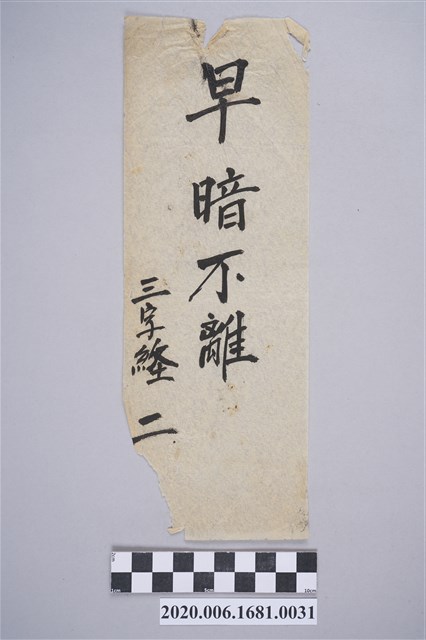 早暗不離
三字經 二
2cm
1cm
5cm
10cm
2020.006.1681.0031